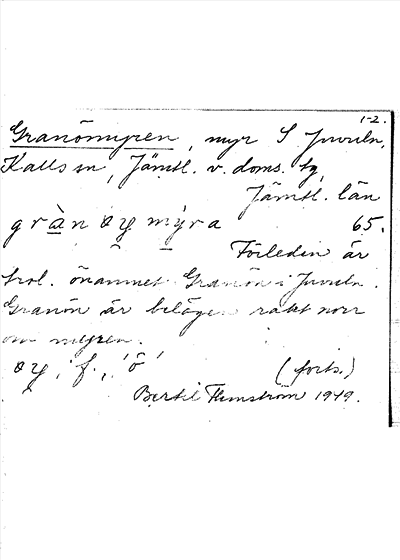 1-2.
Granömyren, myr S Juveln,
Kalls sn, Jämtl. v. doms. tg,
Jämtl. län
gràn øy mýra 65.
Förleden är
trol. önamnet Granön i Juveln.
Granön är belägen rakt norr
om myren.
øy, f., 'ö' (forts.)
Bertil Flemström 1949.